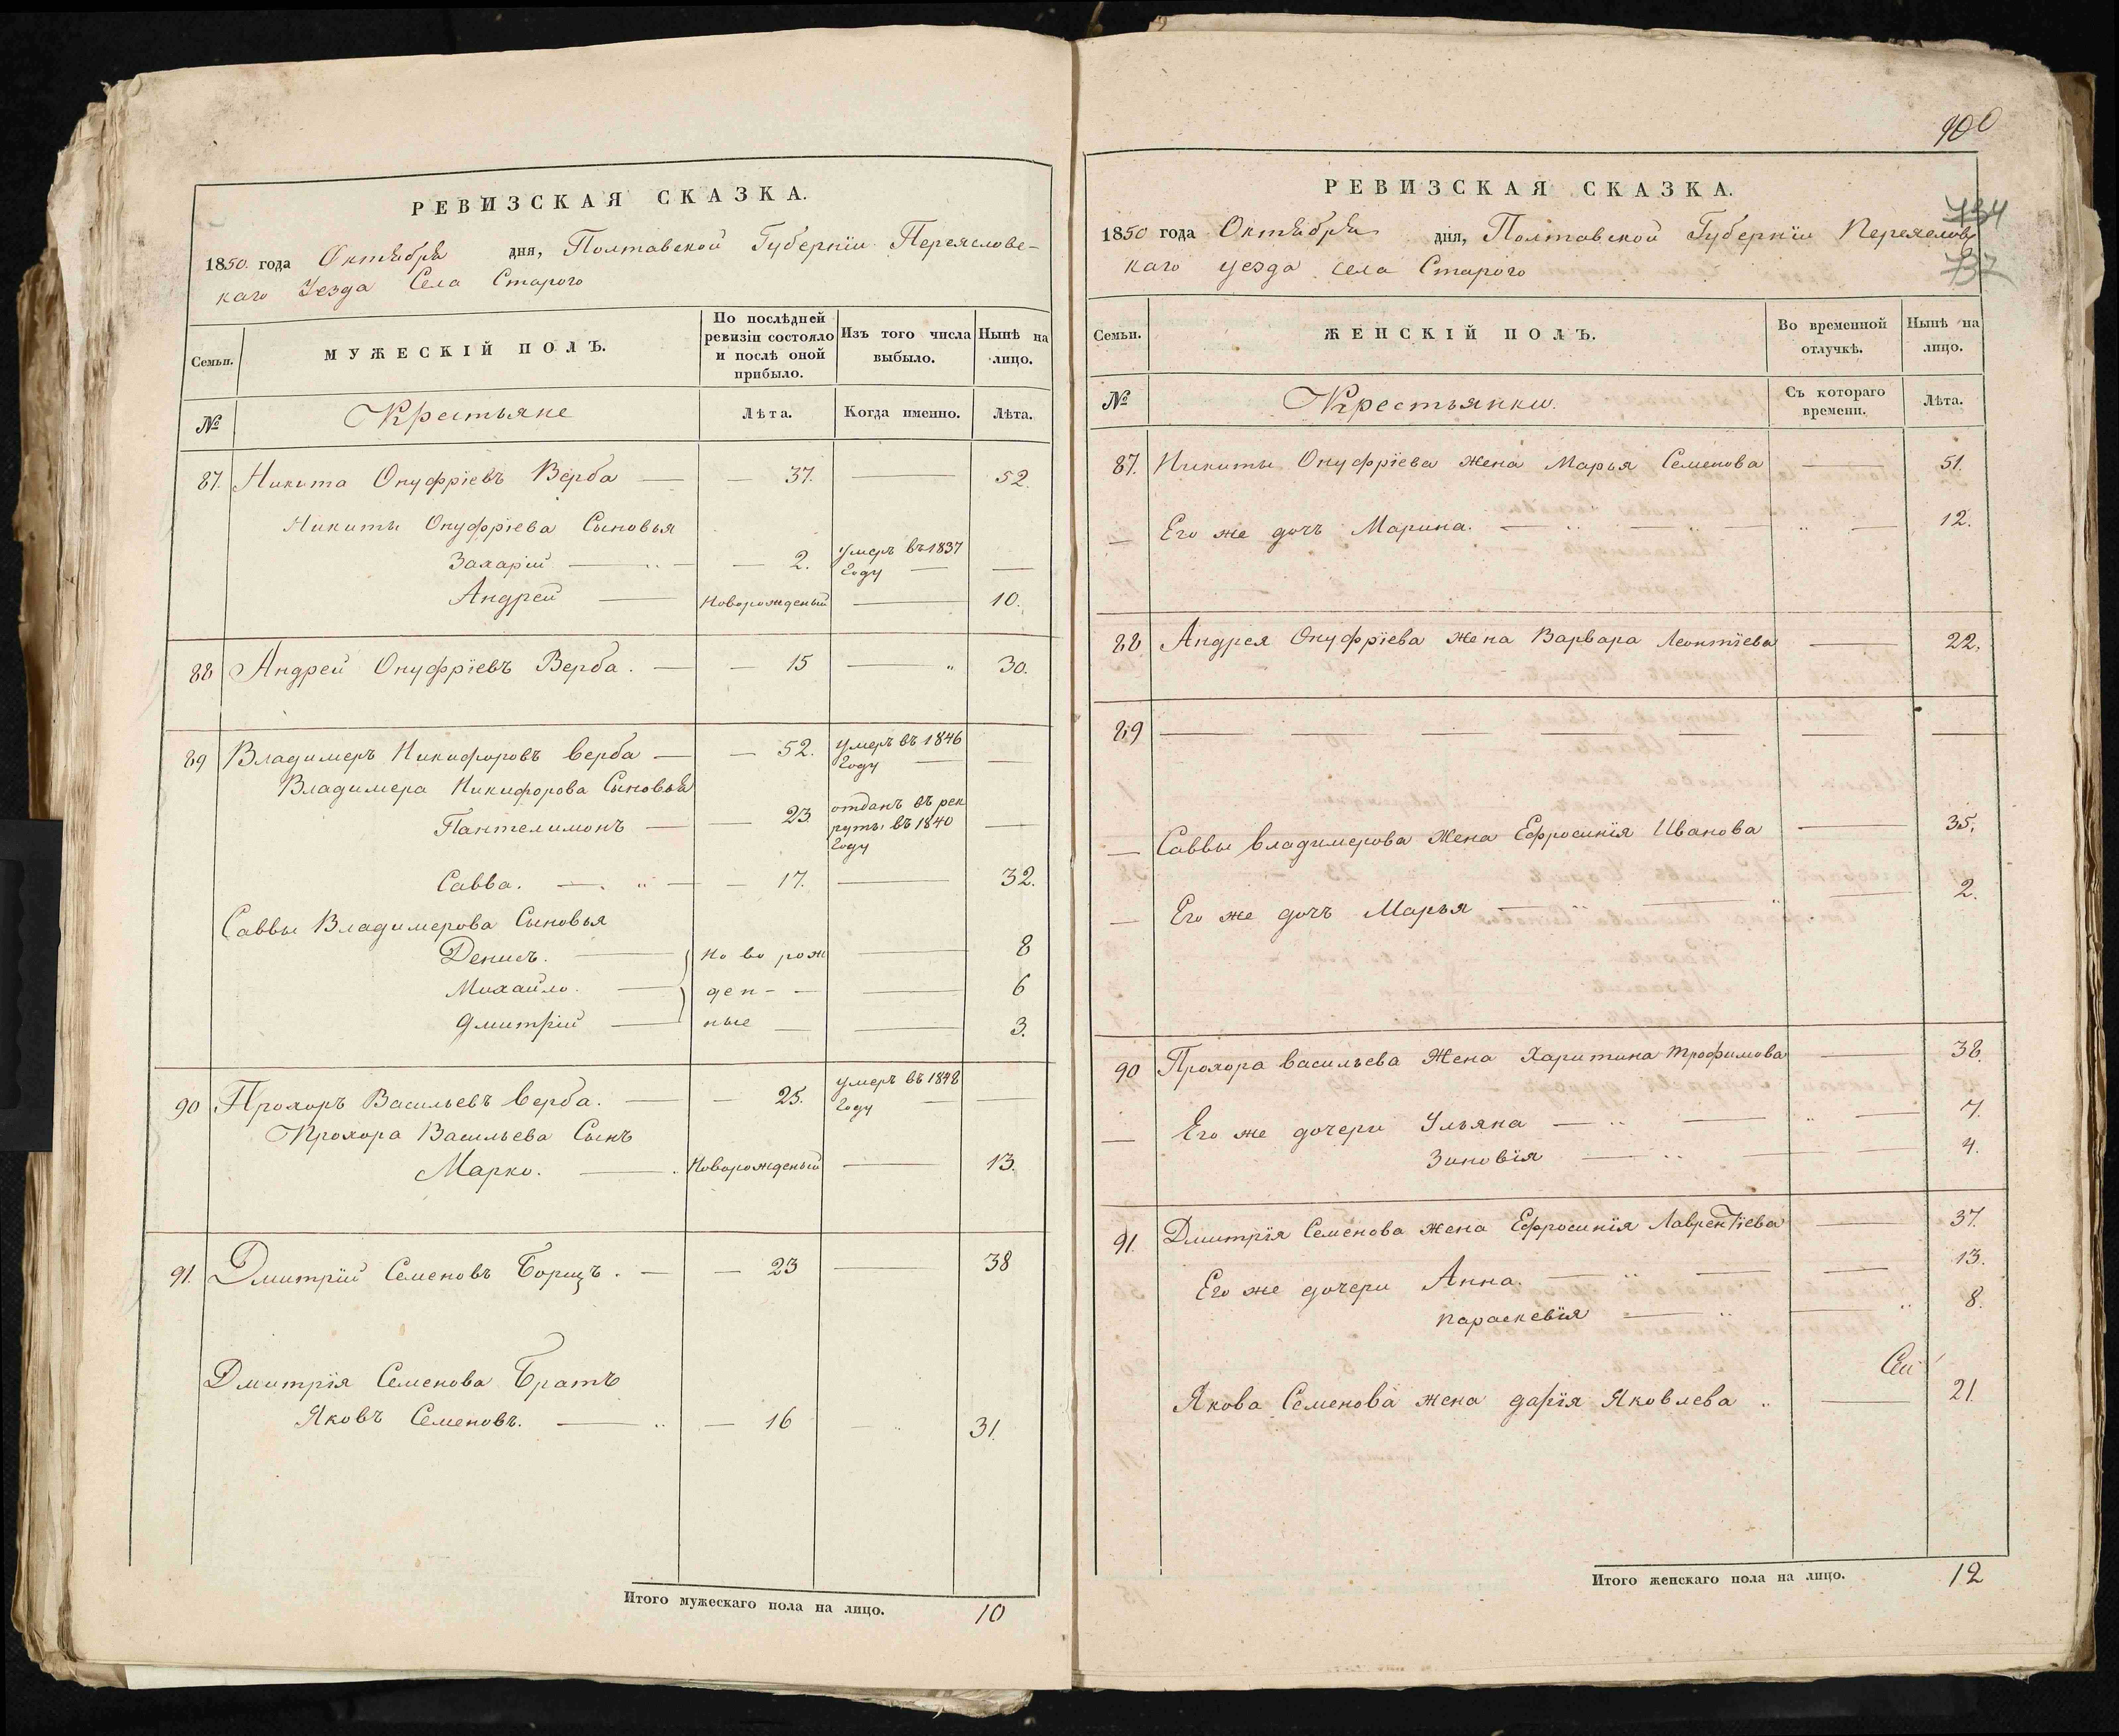 РЕВИЗСКАЯ СКАЗКА.
1850 года Октября дня, Полтавской Губернїи Переяслове-
каго Уезда Села Старого
Семьи.
МУЖЕСКІЙ ПОЛЪ.
По послѣдней ревизіи состояло и послѣ оной прибыло.
Изъ того числа выбыло.
Нынѣ на лицо.
№
Крестьяне
Лѣта.
Когда именно.
Лѣта.
87. Никита Онуфрїевъ Верба — — 37. — 52.
Никиты Онуфрїева Сыновья
Захарїй — — 2. умеръ въ 1837 году — —
Андрей — Новорожденый — 10.
88 Андрей Онуфрїевъ Верба. — — 15 — 30.
89 Владимеръ Никифоровъ Верба — — 52. умеръ въ 1846 году — —
Владимера Никифорова Сыновья
Пантелимонъ — — 23 отданъ въ рек руты въ 1840 году —
Савва. — — 17. — 32.
Саввы Владимерова Сыновья
Денисъ. — но во рож — 8
Михайло. — ден- — — 6
Дмитрїй — ные — — 3.
90 Прохоръ Васильевъ Верба. — — 25. умеръ въ 1848 году — —
Прохора Васильева Сынъ
Марко. — Новорожденый — 13.
91. Дмитрїй Семеновъ Борщъ. — — 23 — 38
Дмитрїя Семенова Братъ
Яковъ Семеновъ. — — 16 — 31.
Итого мужескаго пола на лицо. 10
РЕВИЗСКАЯ СКАЗКА.
734
1850 года Октября дня, Полтавской Губернїи Переяслове
каго уезда села Старого
732
Семьи.
ЖЕНСКІЙ ПОЛЪ.
Во временной отлучкѣ.
Нынѣ на лицо.
№
Крестьянки.
Съ котораго времени.
Лѣта.
87. Никиты Онуфрїева жена Марья Семенова — 51.
— Его же дочъ Марина. — — — — 12.
88 Андрея Онуфрїева жена Варвара Леонтїева — 22.
89 — — — — — — — —
— Саввы Владимерова Жена Ефросинїя Иванова — 35.
— Его же дочъ Марья — — — 2.
90 Прохора Васильева Жена Харитина Трофимова — 38.
— Его же дочери Ульяна — — — 7.
Зиновїя — — — 4.
91. Дмитрїя Семенова жена Ефросинїя Лаврентїева — 37.
Его же дочери Анна. — — — 13.
Параскевїя — — 8.
Якова Семенова жена дарїя Яковлева — 21.
Итого женскаго пола на лицо. 12